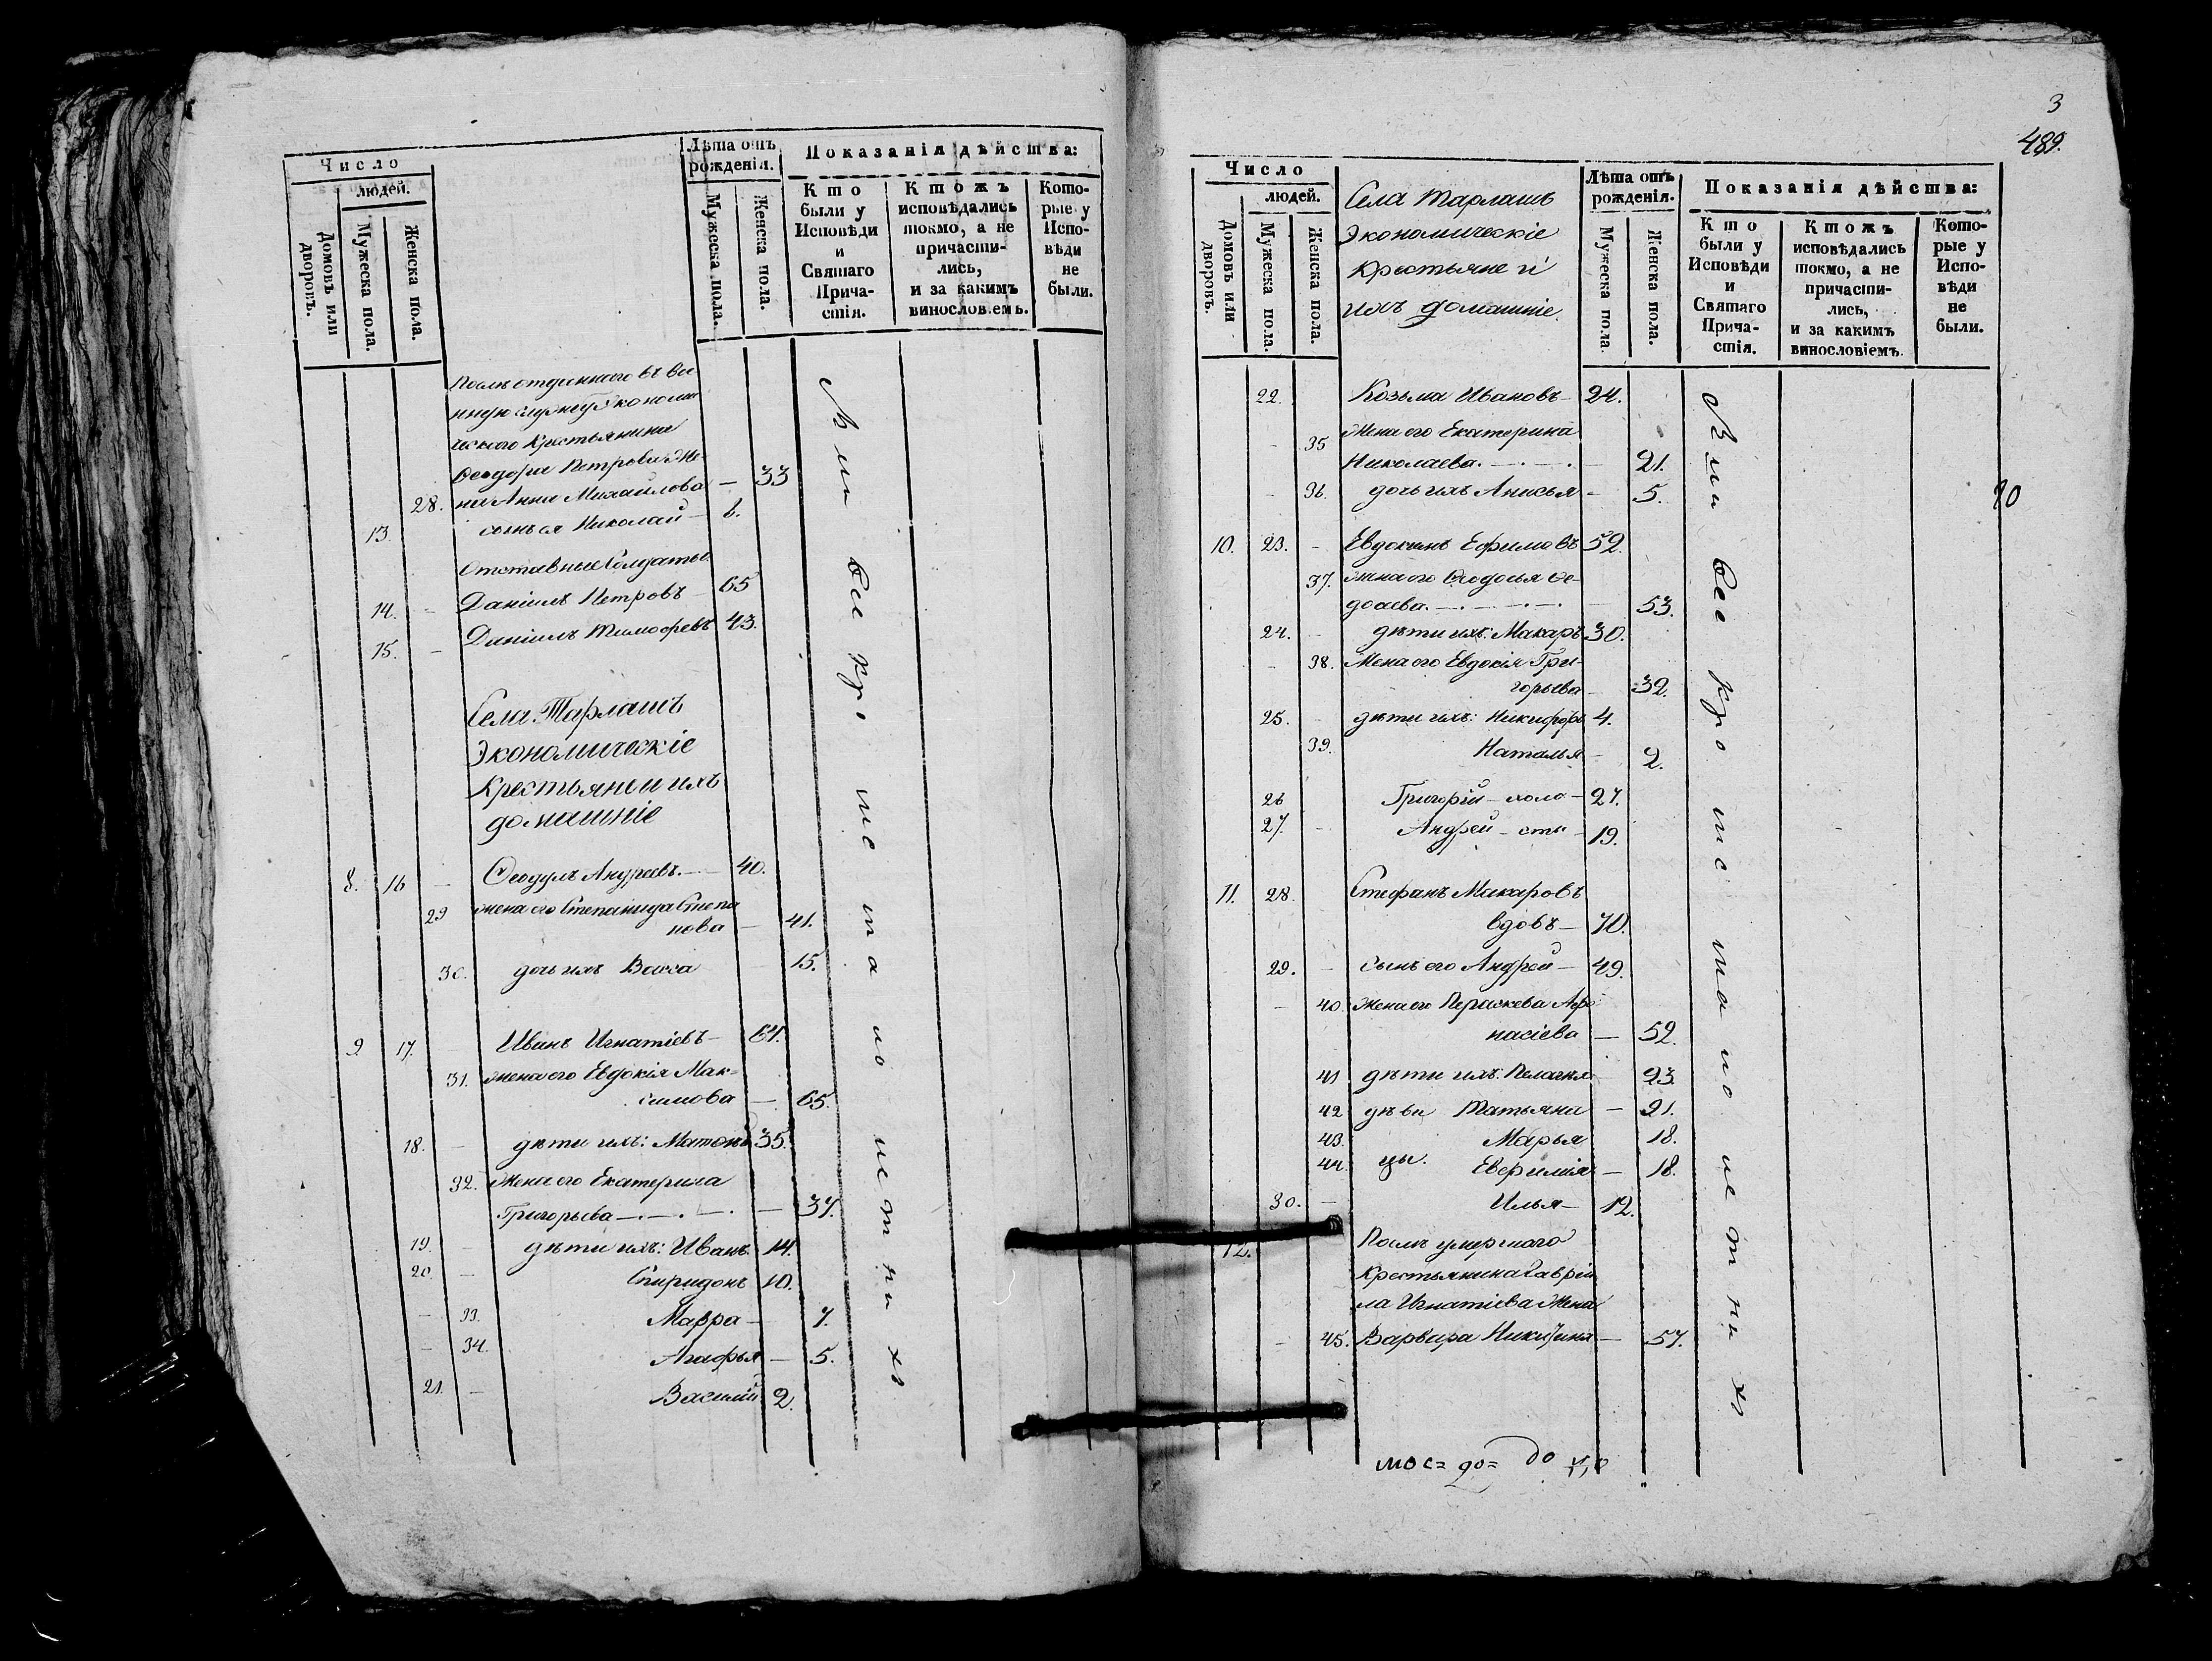 Число
людей.
Домовъ или дворовъ.
Мужеска пола.
Женска пола.
Лѣта отъ рожденія.
Мужеска пола.
Женска пола.
Показанія дѣйства:
Кто были у Исповѣди и Святаго Причастія.
Ктожъ исповѣдались токмо, а не причастились, и за какимъ винословіемъ.
Которые у Исповѣди не были.
Послѣ отданнаго въ вое
нную службу Экономи
ческаго Крестьянина
Ѳеодора Петрова Же-
28. на Анна Михайлова — 33
13. сынъ ея Николай — 6.
Отставные Солдаты.
14. — Даніилъ Петровъ — 65
15. — Даніилъ Тимофеевъ 43.
Села Тарлашъ
Экономическіе
Крестьяне и ихъ
домашніе
8. 16 — Ѳеодулъ Андреевъ. — 40.
29 жена его Степанида Степа
нова — 41.
30. дочь ихъ Васса — 15.
9 17. — Иванъ Игнатіевъ — 64.
31. жена его Евдокія Мак-
симова — 65.
18. — дѣти ихъ: 35.
32. Жена его Екатерина
Григорьева — 37.
19. — дѣти ихъ: Иванъ 14.
20. — Спиридонъ 10.
— 33. Мавра — 7.
— 34. Агафья — 5.
21. — Василій 2.
Всѣ
3
489.
Число
людей.
Домовъ или дворовъ.
Мужеска пола.
Женска пола.
Села Тарлашъ
Экономическіе
Крестьяне и
ихъ домашніе.
Лѣта отъ рожденія.
Мужеска пола.
Женска пола.
Показанія дѣйства:
Кто были у Исповѣди и Святаго Причастія.
Ктожъ исповѣдались токмо, а не причастились, и за какимъ винословіемъ.
Которые у Исповѣди не были.
22. Козьма Ивановъ — 24.
— 35 Жена его Екатерина
Николаева. — 21.
— 36. дочь ихъ Анисья — 5.
10. 23. — Евдокимъ Ефимовъ 52.
37. жена его Ѳеодосья Ѳе-
доаева. — 53.
24. — дѣти ихъ: Макаръ 30.
— 38. Жена его Евдокія Гри-
горьева — 32.
25. — дѣти ихъ: Никифоръ 4.
39. Наталья — 2.
26 Григорій — холо — 27.
27. — Андрей — сты — 19.
11. 28. Стефанъ Макаровъ
вдовъ — 70.
29. — сынъ его Андрей — 49.
— 40. Жена его Параскева Афа
насіева — 52.
41 дѣти ихъ: Пелагея 23.
42 дѣви Татьяна — 21.
43. Марья 18.
44. цы. Евфимія — 18.
30. — Илья — 12.
12. Послѣ умершаго
Крестьянина Гавріи
ла Игнатіева Жена
— 45. Варвара Никитина — 57.
20